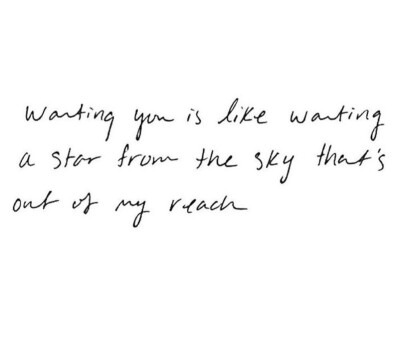 Wanting you is like wanting
a star from the sky that's
out of my reach